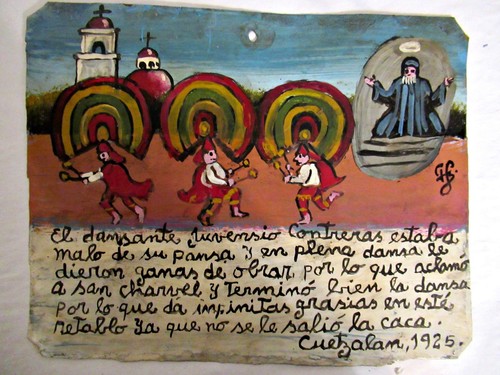 El dansante Juvensio Contreras estaba
malo de su pansa y en plena dansa le
dieron ganas de obrar, por lo que aclamó
a san charvel y terminó bien la dansa
por lo que da infinitas grasias en esté
retablo ya que no se le salió la caca.
Cuetzalan, 1925.